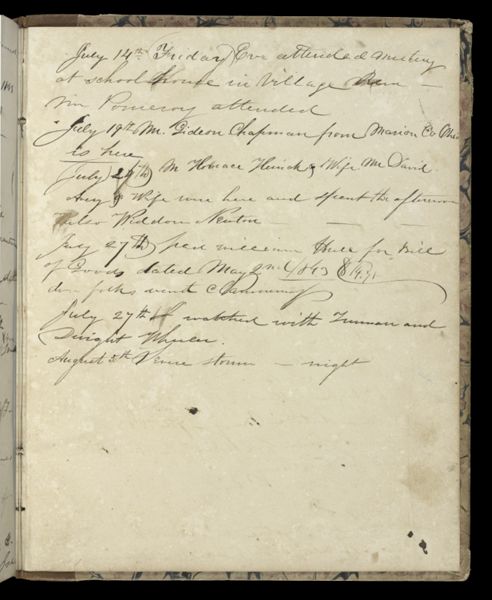 July 14th Friday Eve attended meeting
at school House in Village
Wm Pomeroy attended
July 19th Mr. Gideon Chapman from Marion Co Ohio
is here
July 24th Mr Horace & Wife Mr David
& Wife were here and spent the afternoon
also Widdow Newton
July 27th paid William Hull for Bill
of Goods dated May 2nd 1863 $19.71
our folks went
July 27th I watched with Truman and
Dwight Wheeler.
August 5th storm - night